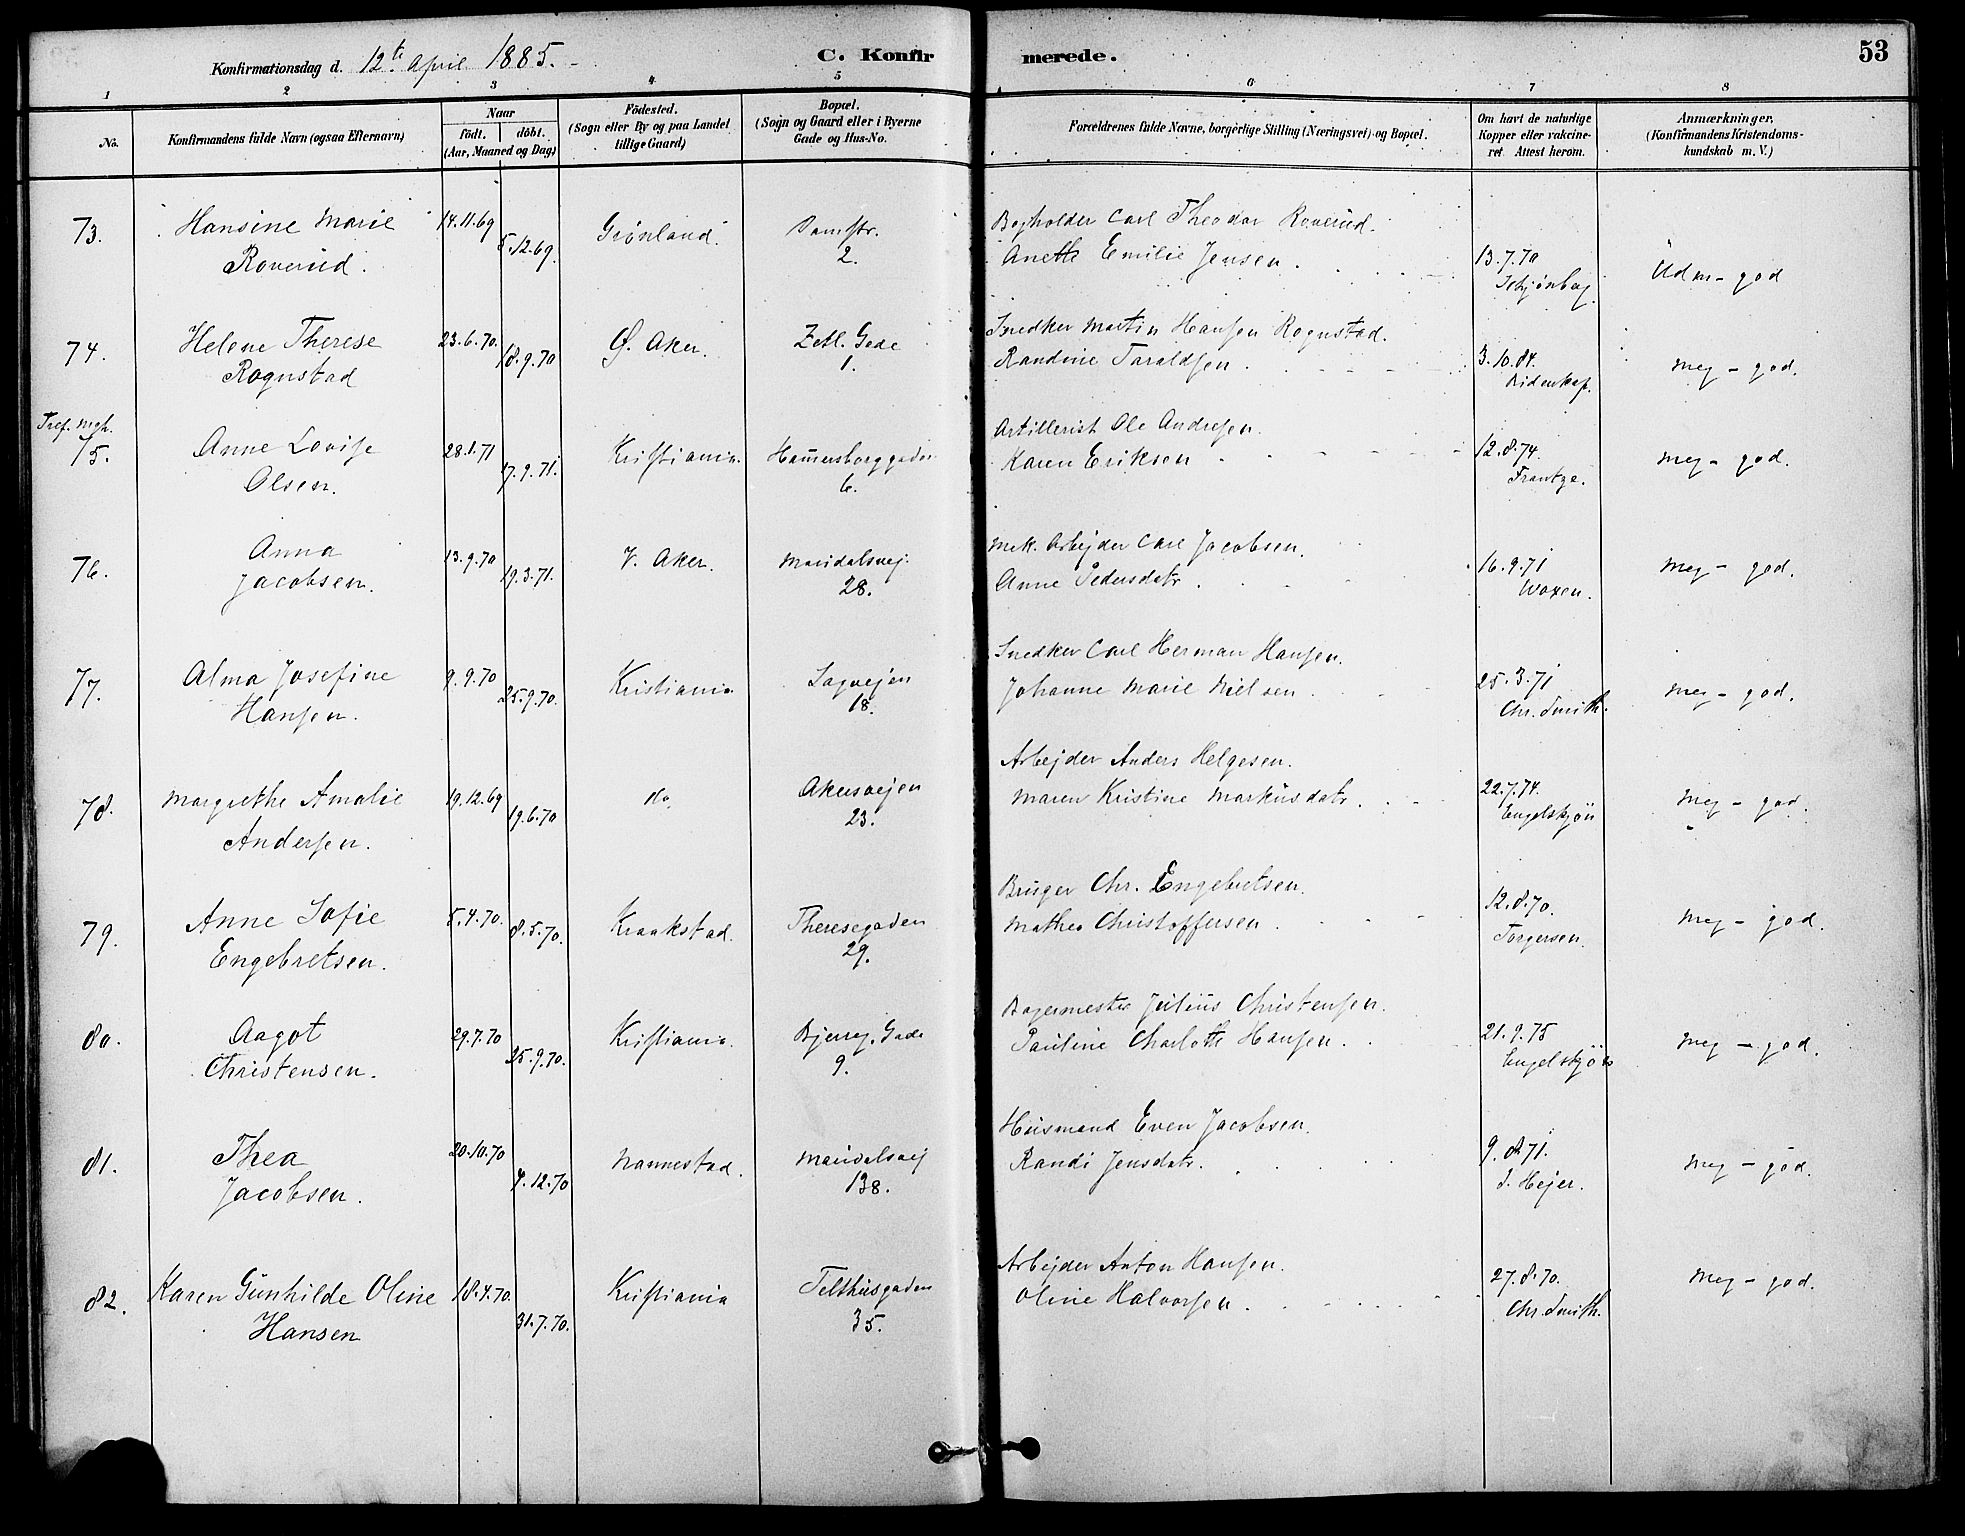 Konfirmationsdag d. 12te April 1885.
C. Konfirmerede.
53
1 2 3 4 5 6 7 8
No.
Konfirmandens fulde Navn (ogsaa Efternavn)
Naar
födt. döbt.
(Aar, Maaned og Dag)
Födested.
(Sogn eller By og paa Landet
tillige Gaard)
Bopæl.
(Sogn og Gaard eller i Byerne
Gade og Hus-No.
Forældrenes fulde Navne, borgerlige Stilling (Næringsvei) og Bopæl.
Om havt de naturlige
Kopper eller vakcine-
ret Attest herom.
Anmærkninger,
(Konfirmandens Kristendoms-
kundskab m. V.)
73. Hansine Marie 14.11.69 Grönland. Damstr. Bogholder Carl Theodor Roverud.
Roverud. 5.12.69. 2. Anette Emilie Jensen. 13.7.70 Udm - god
Schjønberg
74. Helene Therese 23.6.70. Ø. Aker. Zetl. Gade Snedker Martin Hansen Rognstad.
Rognstad 18.9.70 1. Randine Taraldsen. 3.10.84. Meg - god.
Bidenkap.
Tref. megh.
75. Anne Lovise 28.1.71 Kristiania. Hamersborggaden Artillerist Ole Andresen.
Olsen. 17.9.71. 6. Karen Eriksen 12.8.74. Meg - god.
Frantze.
76. Anna 13.9.70 V. Aker. Maridalsvej. Mek. Arbejder Carl Jacobsen.
Jacobsen. 19.3.71. 28. Anne Pedersdatr. 16.9.71 Meg - god.
Woxen.
77. Alma Josefine 9.9.70 Kristiania Sagvejen Snedker Carl Herman Hansen.
Hansen. 25.9.70. 18. Johanne Marie Nielsen. 25.3.71 Meg - god.
Chr. Smith.
78. Margrethe Amalie 19.12.69 do Akersvejen Arbejder Anders Helgesen.
Andersen. 19.6.70 23. Maren Kristine Markusdatr. 22.7.74. Meg - god.
Engelskjön
79. Anne Sofie 5.4.70. Kraakstad. Theresegaden Bruger Chr. Engebretsen.
Engebretsen. 8.5.70. 29. Mathea Christoffersen. 12.8.70. Meg - god.
Torgersen.
80. Aagot 29.7.70 Kristiania. Bjerreg. Gade Bagermester Julius Christensen.
Christensen. 25.9.70. 9. Pauline Charlotte Hansen. 21.9.75 Meg - god.
Engelskjön
81. Thea 20.10.70 Nannestad. Maridalsvej Husmand Even Jacobsen.
Jacobsen. 4.12.70 138. Randi Jensdatr. 9.8.71. Meg - god.
S. Hejer.
82. Karen Gunhilde Oline 18.4.70. Kristiania Telthusgaden Arbejder Anton Hansen.
Hansen 31.7.70. 35. Oline Halvorsen. 27.8.70. Meg - god.
Chr. Smith.